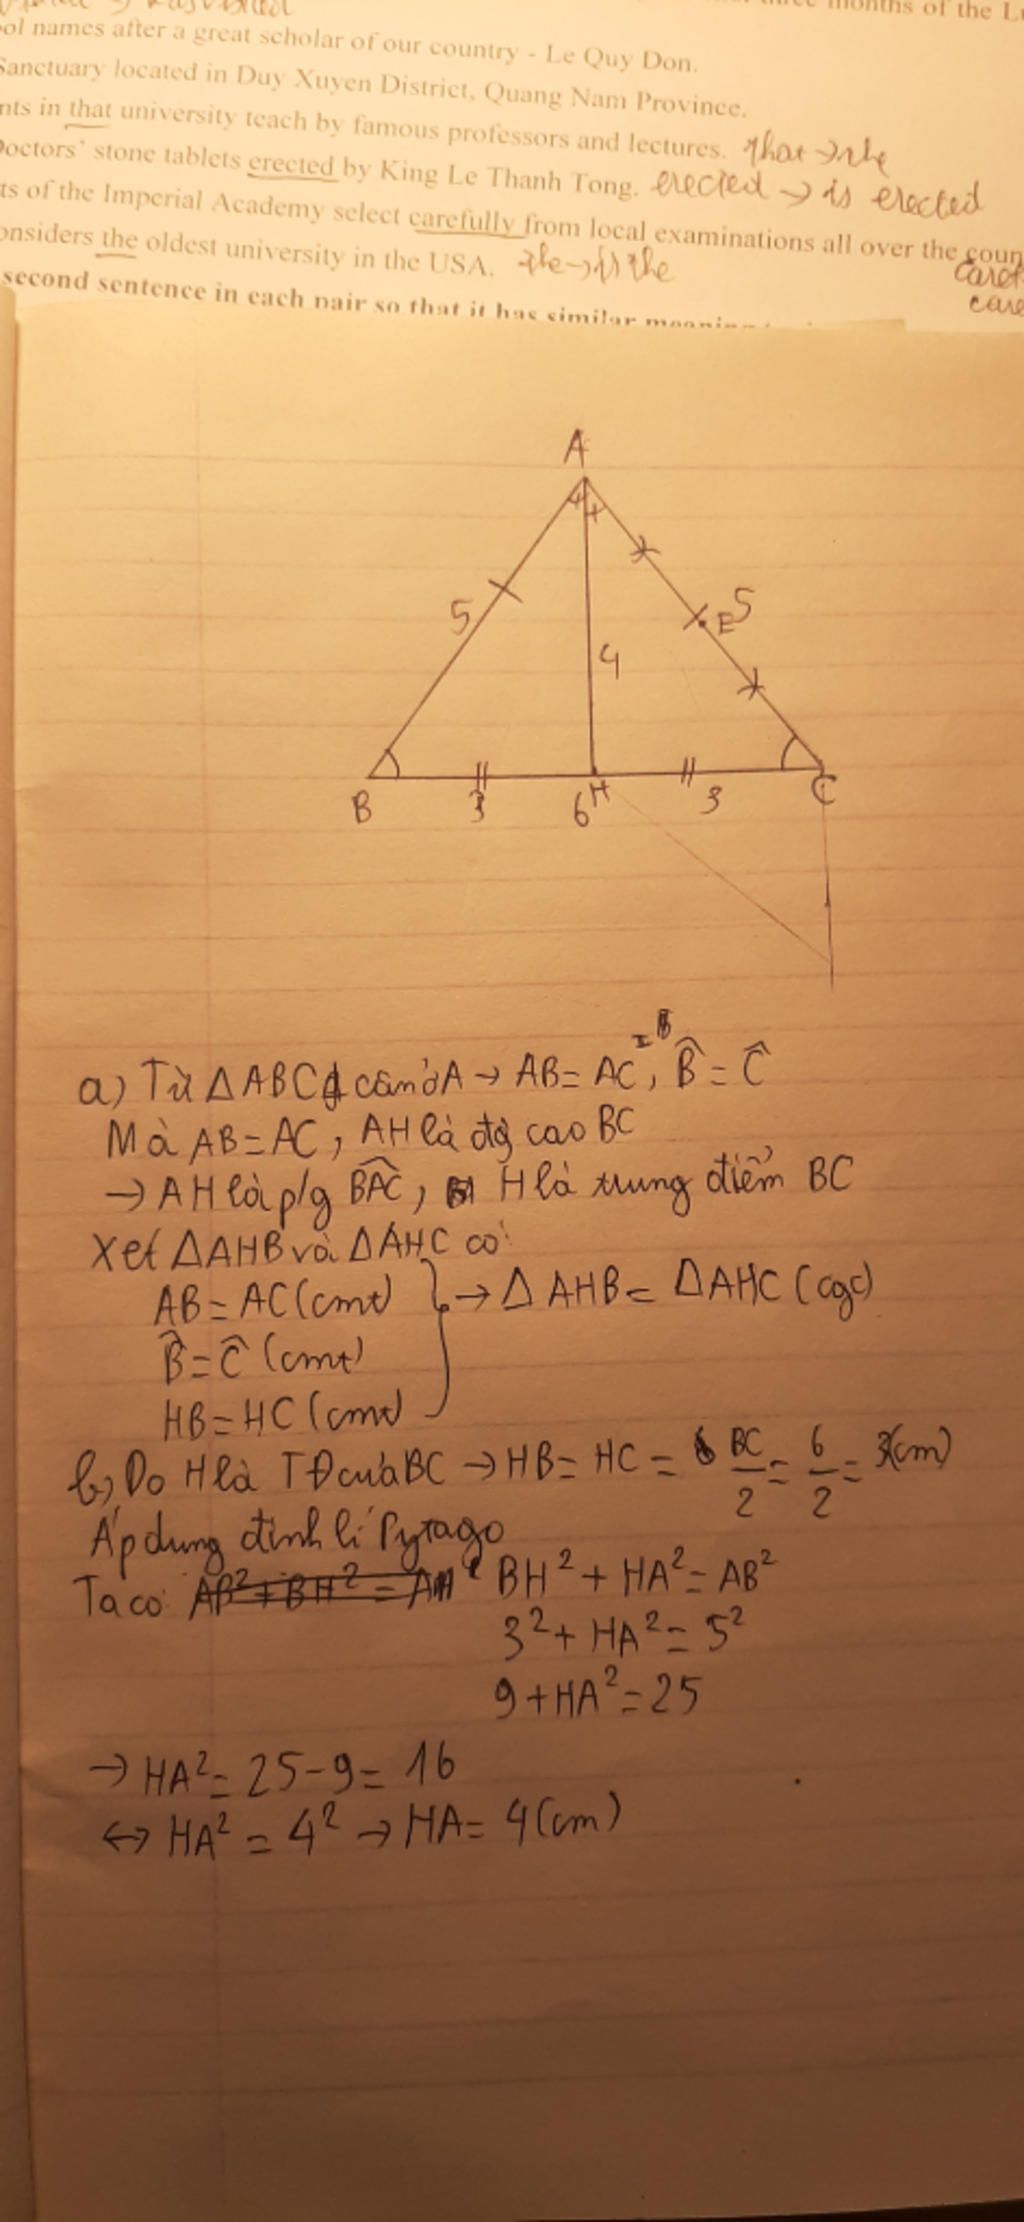 months of the L
ol names after a great scholar of our country - Le Quy Don.
Sanctuary located in Duy Xuyen District, Quang Nam Province.
nts in that university teach by famous professors and lectures. that → the
Doctors' stone tablets erected by King Le Thanh Tong. erected → is erected
ts of the Imperial Academy select carefully from local examinations all over the coun
onsiders the oldest university in the USA. the → is the
care
second sentence in each pair so that it has similar meaning
A
5
5
E
4
B
3
6
H
3
C
a) Từ △ABC cân ở A → AB = AC, B̂ = Ĉ
Mà AB = AC, AH là độ cao BC
→ AH là p/g BAC, H là trung điểm BC
Xét △AHB và △AHC có:
AB = AC (cmt) } → △AHB = △AHC (cgc)
B̂ = Ĉ (cmt)
HB = HC (cmt)
b) Do H là TĐ của BC → HB = HC = BC/2 = 6/2 = 3(cm)
Áp dụng định lí Pytago
Ta có: BH² + HA² = AB²
3² + HA² = 5²
9 + HA² = 25
→ HA² = 25 - 9 = 16
↔ HA² = 4² → HA = 4 (cm)